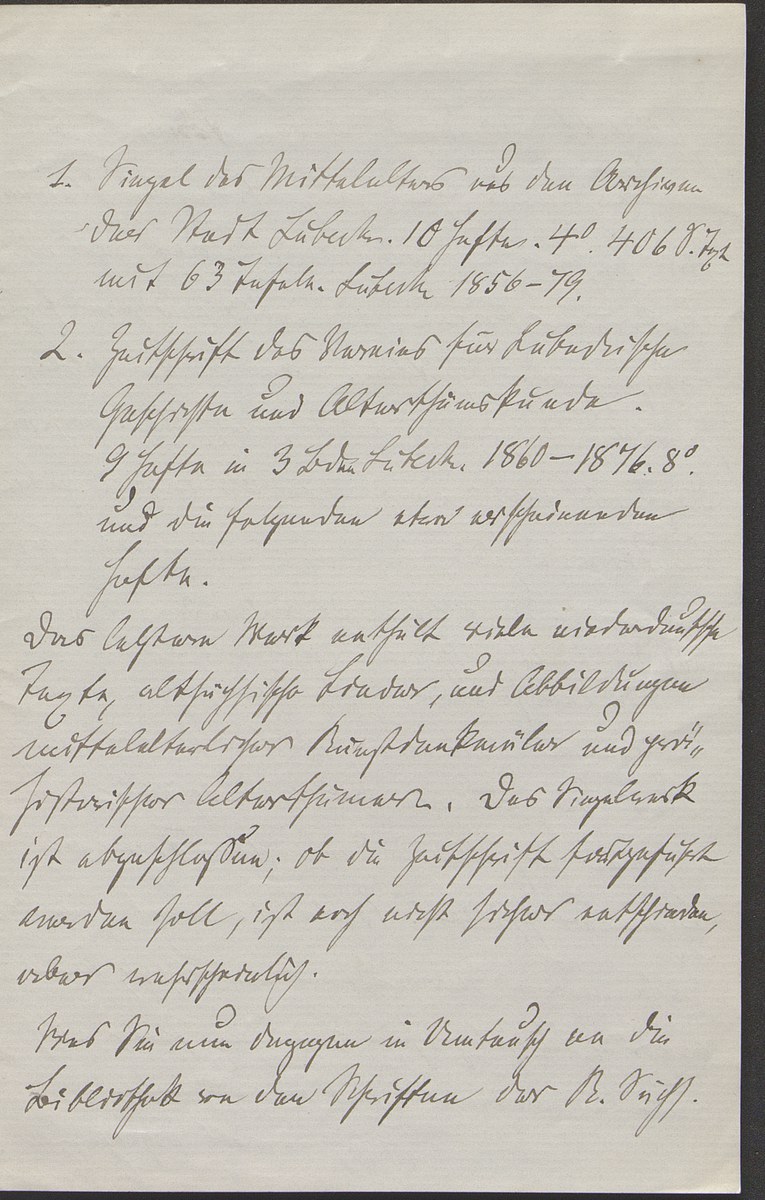 1. Siegel des Mittelalters aus den Archiven
der Stadt Lübeck. 10 Hefte. 4°. 406 S. Text
mit 63 Tafeln. Lübeck 1856–79.
2. Zeitschrift des Vereins für Lübeckische
Geschichte und Alterthumskunde.
9 Hefte in 3 Bden Lübeck. 1860–1876. 8°.
und die folgenden etwa erscheinenden
Hefte.
Das letztere Werk enthält viele niederdeutsche
Texte, altsächsische Lieder, und Abbildungen
mittelalterlicher Kunstdenkmäler und prä-
historischer Alterthümer. Das Siegelwerk
ist abgeschlossen; ob die Zeitschrift fortgeführt
werden soll, ist noch nicht sicher entschieden,
aber wahrscheinlich.
Was Sie nun dagegen in Umtausch an die
Bibliothek von den Schriften der K. Sächs.